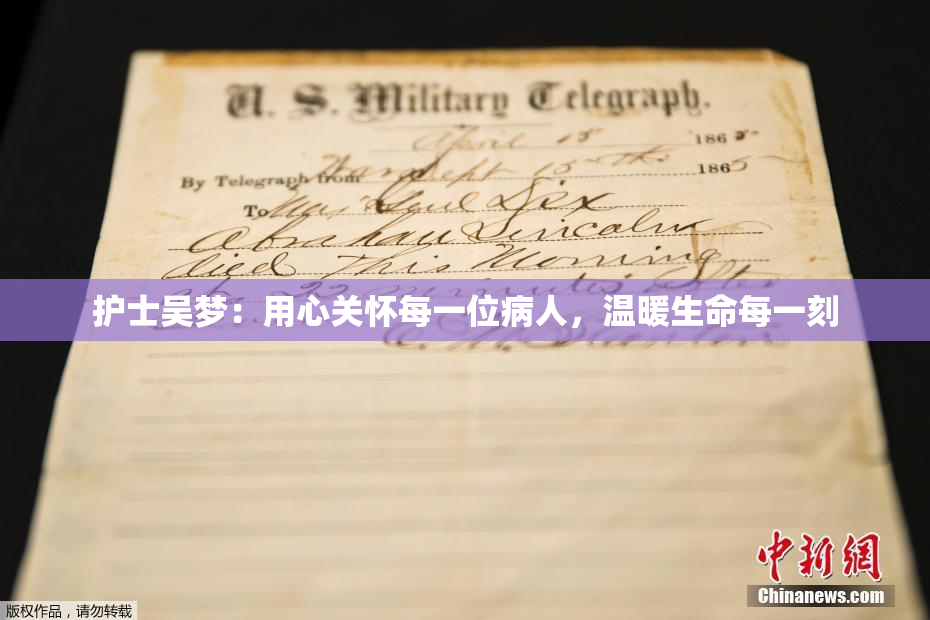 U. S. Military Telegraph.
April 15 1865
By Telegraph from War Dept 15th 1865
To Maj Genl Dix
Abraham Lincoln
died This Morning
22 minutes after
护士吴梦：用心关怀每一位病人，温暖生命每一刻
中新网
Chinanews.com
版权作品，请勿转载